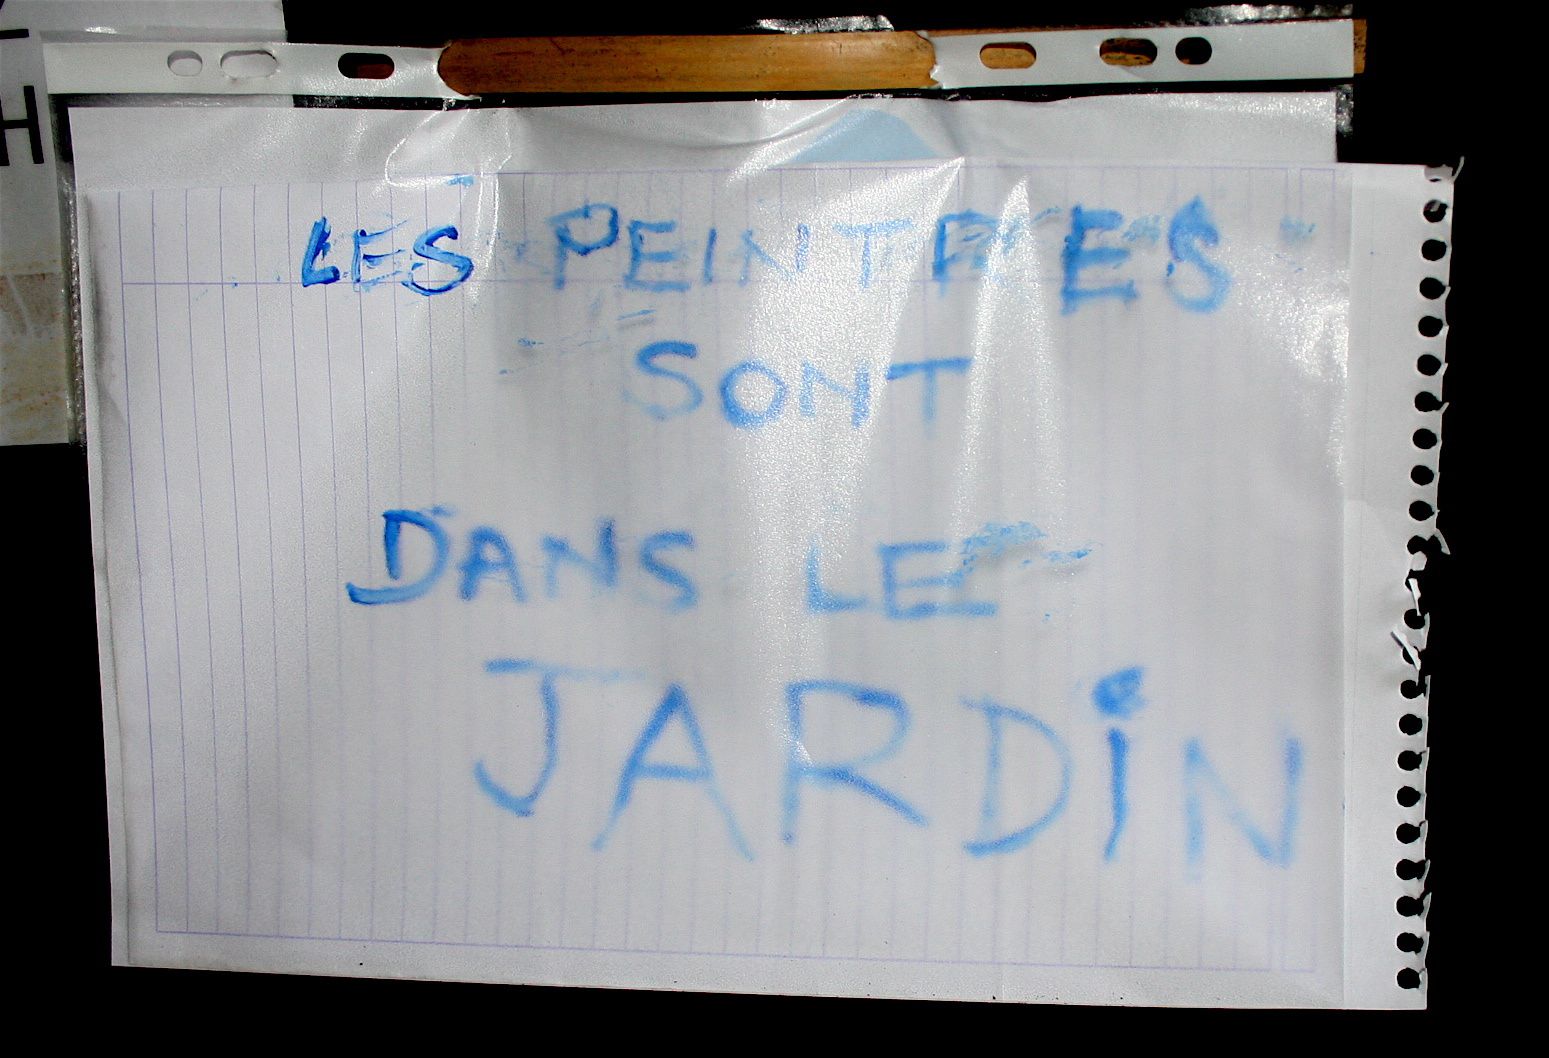 LES PEINTRES
SONT
DANS LE
JARDiN